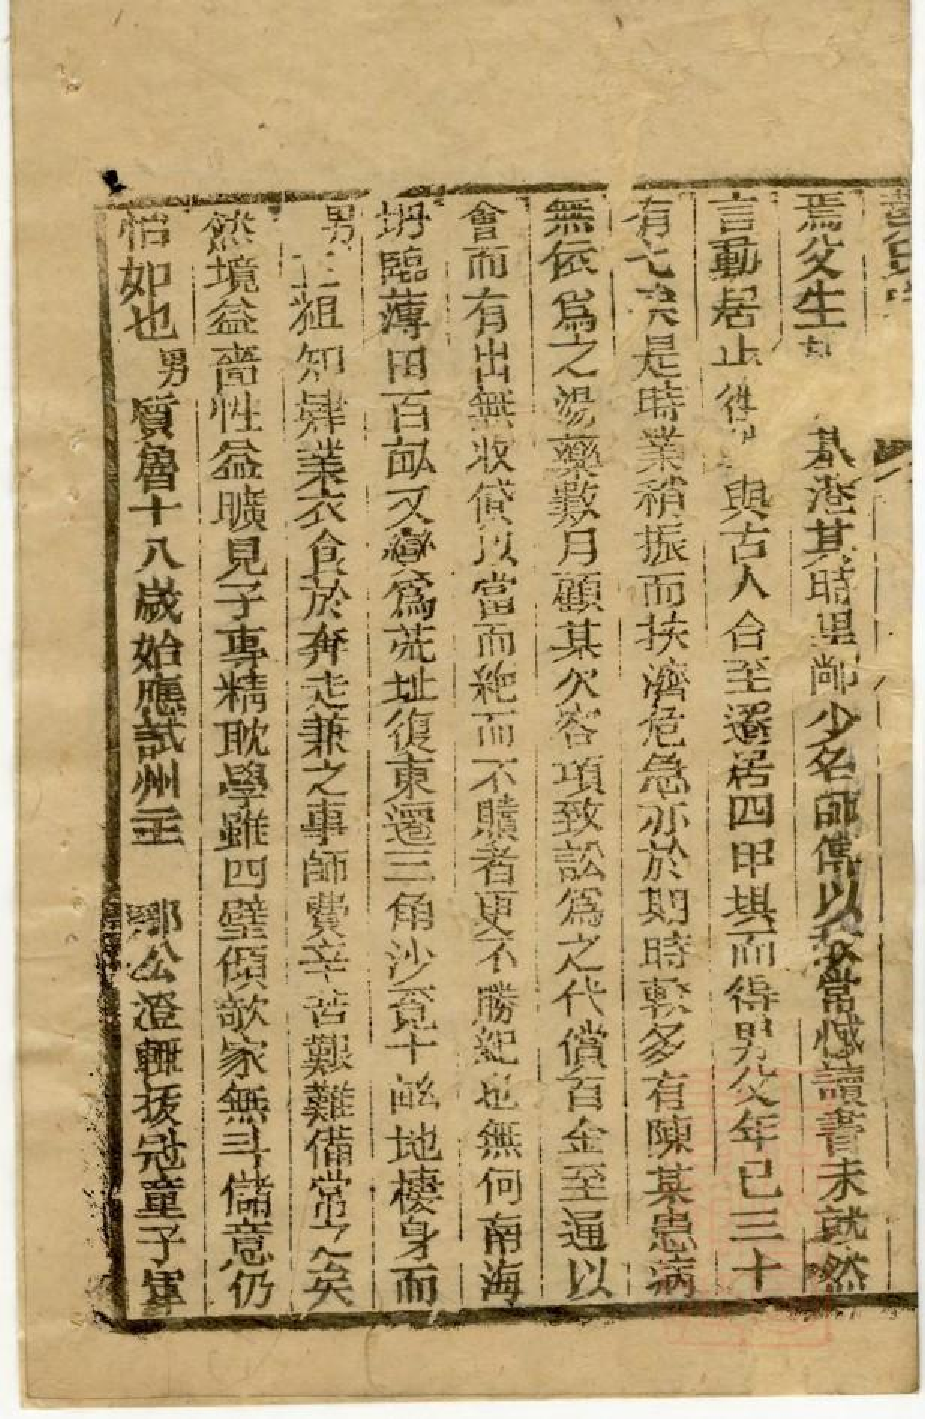 焉父生 基港其時里鄰少名師儔以故常憾讀書未就然
言動居止 與古人合至遷居四甲埧而得男父年已三十
有七矣是時業稍振而扶濟危急亦於期時較多有陳某患病
無依爲之湯藥數月顧某欠客項致訟爲之代償百金至逼以
會而有出無收貸以當而絶而不贖者更不勝紀也無何南海
坍臨薄田百畝又變爲荒址復東遷三角沙覓十畝地棲身而
男 粗知肄業衣食於奔走兼之事師費辛苦艱難備常之矣
然境益嗇性益曠見子專精耽學雖四壁傾欹家無斗儲意仍
怡如也男質魯十八歲始應試州主 鄂公澄輒拔冠童子軍